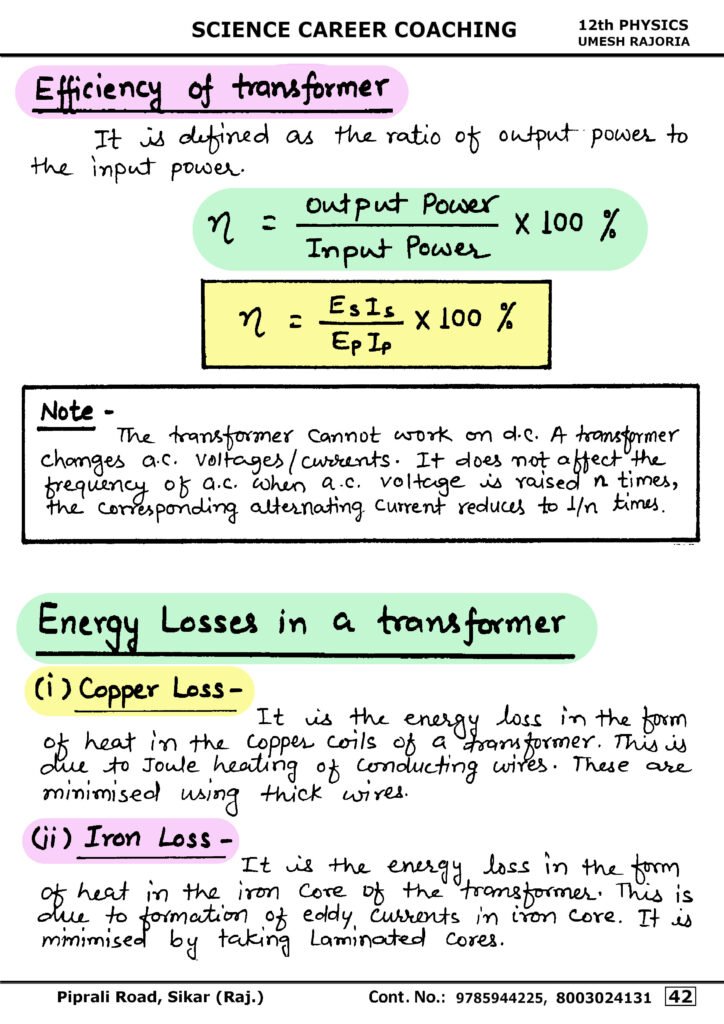 SCIENCE CAREER COACHING
12th PHYSICS
UMESH RAJORIA
Efficiency of transformer
It is defined as the ratio of output power to
the input power.
η = Output Power / Input Power × 100 %
η = EsIs / EpIp × 100 %
Note -
The transformer cannot work on d.c. A transformer
changes a.c. voltages/currents. It does not affect the
frequency of a.c. when a.c. voltage is raised n times,
the corresponding alternating current reduces to 1/n times.
Energy Losses in a transformer
(i) Copper Loss -
It is the energy loss in the form
of heat in the copper coils of a transformer. This is
due to Joule heating of conducting wires. These are
minimised using thick wires.
(ii) Iron Loss -
It is the energy loss in the form
of heat in the iron core of the transformer. This is
due to formation of eddy currents in iron core. It is
minimised by taking Laminated cores.
Piprali Road, Sikar (Raj.) Cont. No.: 9785944225, 8003024131 42